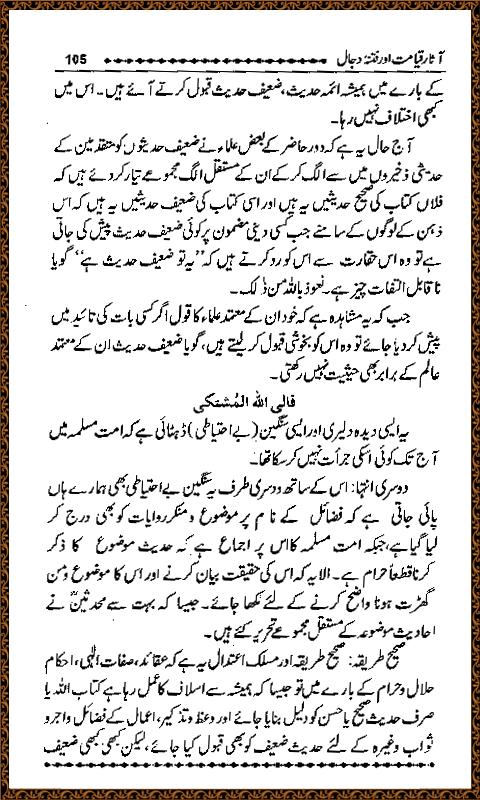 آثار قیامت اور فتنۂ دجال
105
کے بارے میں ہمیشہ ائمہ حدیث، ضعیف حدیث قبول کرتے آئے ہیں۔ اس میں
کبھی اختلاف نہیں رہا۔
آج حال یہ ہے کہ دور حاضر کے بعض علماء نے ضعیف حدیثوں کو متقدمین کے
حدیثی ذخیروں میں سے الگ کر کے ان کے مستقل الگ مجموعے تیار کر دئے ہیں کہ
فلاں کتاب کی صحیح حدیثیں یہ ہیں اور اسی کتاب کی ضعیف حدیثیں یہ ہیں کہ اس
ذہن کے لوگوں کے سامنے جب کسی دینی مضمون پر کوئی ضعیف حدیث پیش کی جاتی
ہے تو وہ اس حقارت سے اس کو رد کرتے ہیں کہ ”یہ تو ضعیف حدیث ہے“ گویا
نا قابل التفات چیز ہے۔ نعوذ باللہ من ذلک۔
جب کہ یہ مشاہدہ ہے کہ خود ان کے معتمد علماء کا قول اگر کسی بات کی تائید میں
پیش کر دیا جائے تو وہ اس کو بخوشی قبول کر لیتے ہیں، گویا ضعیف حدیث ان کے معتمد
عالم کے برابر بھی حیثیت نہیں رکھتی۔
فالی اللہ المُشتکی
یہ ایسی دیدہ دلیری اور ایسی سنگین (بے احتیاطی) ڈھٹائی ہے کہ امت مسلمہ میں
آج تک کوئی اسکی جرأت نہیں کر سکا تھا۔
دوسری انتہا: اس کے ساتھ دوسری طرف یہ سنگین بے احتیاطی بھی ہمارے ہاں
پائی جاتی ہے کہ فضائل کے نام پر موضوع و منکر روایات کو بھی درج کر
لیا گیا ہے، جبکہ امت مسلمہ کا اس پر اجماع ہے کہ حدیث موضوع کا ذکر
کرنا قطعاً حرام ہے۔ الا یہ کہ اس کی حقیقت بیان کرنے اور اس کا موضوع ومن
گھڑت ہونا واضح کرنے کے لئے لکھا جائے۔ جیسا کہ بہت سے محدثینؒ نے
احادیث موضوعہ کے مستقل مجموعے تحریر کئے ہیں۔
صحیح طریقہ: صحیح طریقہ اور مسلک اعتدال یہ ہے کہ عقائد، صفات الٰہی، احکام
حلال و حرام کے بارے میں تو جیسا کہ ہمیشہ سے اسلاف کا عمل رہا ہے کتاب اللہ یا
صرف حدیث صحیح یا حسن کو دلیل بنایا جائے اور وعظ و تذکیر، اعمال کے فضائل و اجر و
ثواب وغیرہ کے لئے حدیث ضعیف کو بھی قبول کیا جائے، لیکن کبھی کبھی ضعیف